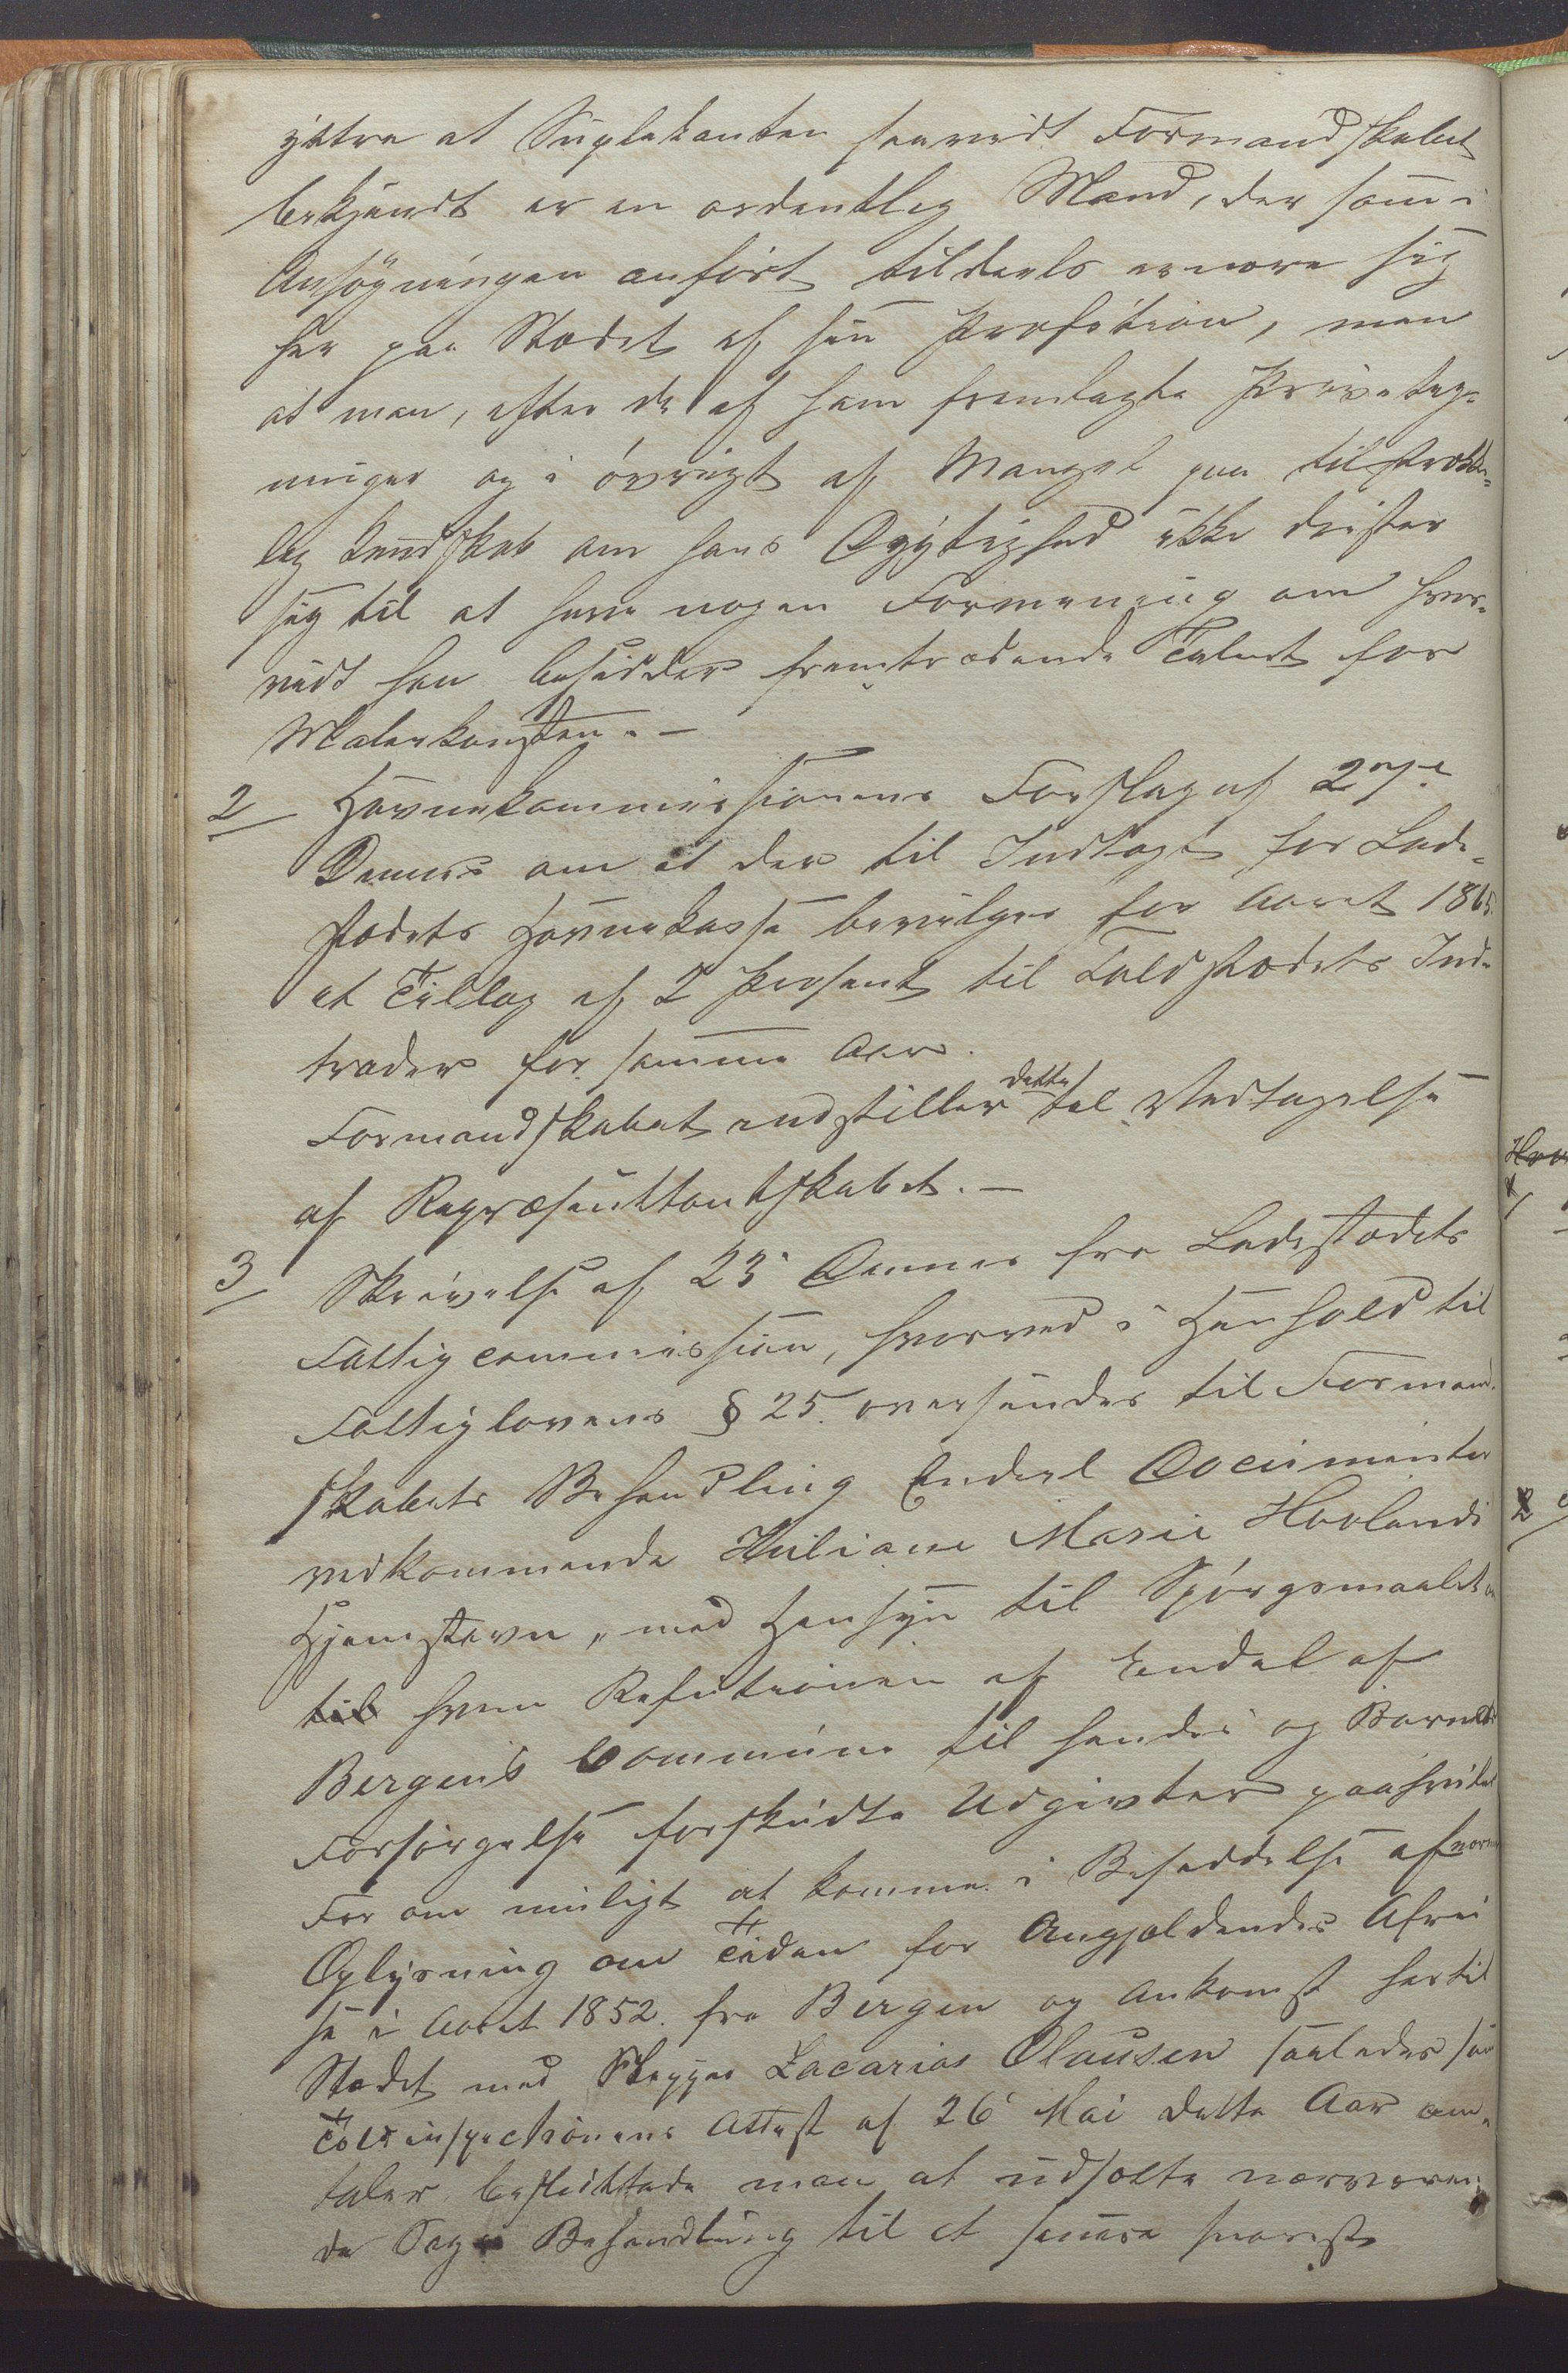 yttre at Suplekanten saavidt Formandskabet
bekjendt er en ordentlig Mand, der som i
Ansøgningen anført tildeels ernære sig
her paa Stædet af sin Profetion, men
at man, efter de af ham fremlagte Prøveteg-
ninger og i øvrigt af Mangel paa tilstrække-
lig Kundskab om hans Dygtighed ikke drister
sig til at have nogen Formening om hvor-
vidt han besidder fremtrædende Talent for
Malerkonsten. -
2 Havnekommissionens Forslag af
Dennes om at der til Indtægt for Lade-
stædets Havnekasse bevilges for Aaret 1865
et Tillæg af 2 Prosent til Toldstædets Ind-
trader for samme Aar.
Formandskabet indstiller dette til Vedtagelse
af Repræsenttantskabet. -
3 Skrivelse af 23 Dennes fra Ladestædets
Fattigcommission, hvorved i Henhold til
Fattiglovens § 25. oversendes til Formand-
skabets Behandling Endeel Documenter
vedkommende Huliane Marie Hovlands
Hjemstavn, med Hensyn til Spørgsmaalet
til hvem Refutionen af Endel af
Bergens Commune til hendes og Barnets
Forsørgelse forskudte Udgivter paahviler
For om muligt at komme i Besiddelse af
Oplysning om Tiden for Angjældendes Afrei
se i Aaret 1852. fra Bergen og Ankomst hertil
Stædet med Skipper Zacarias Clausen saaledes som
Toldinspectionens Attest af 26 Mai dette Aar om-
taler besluttede man at udsætte nærværen-
de Sags Behandling til et senere